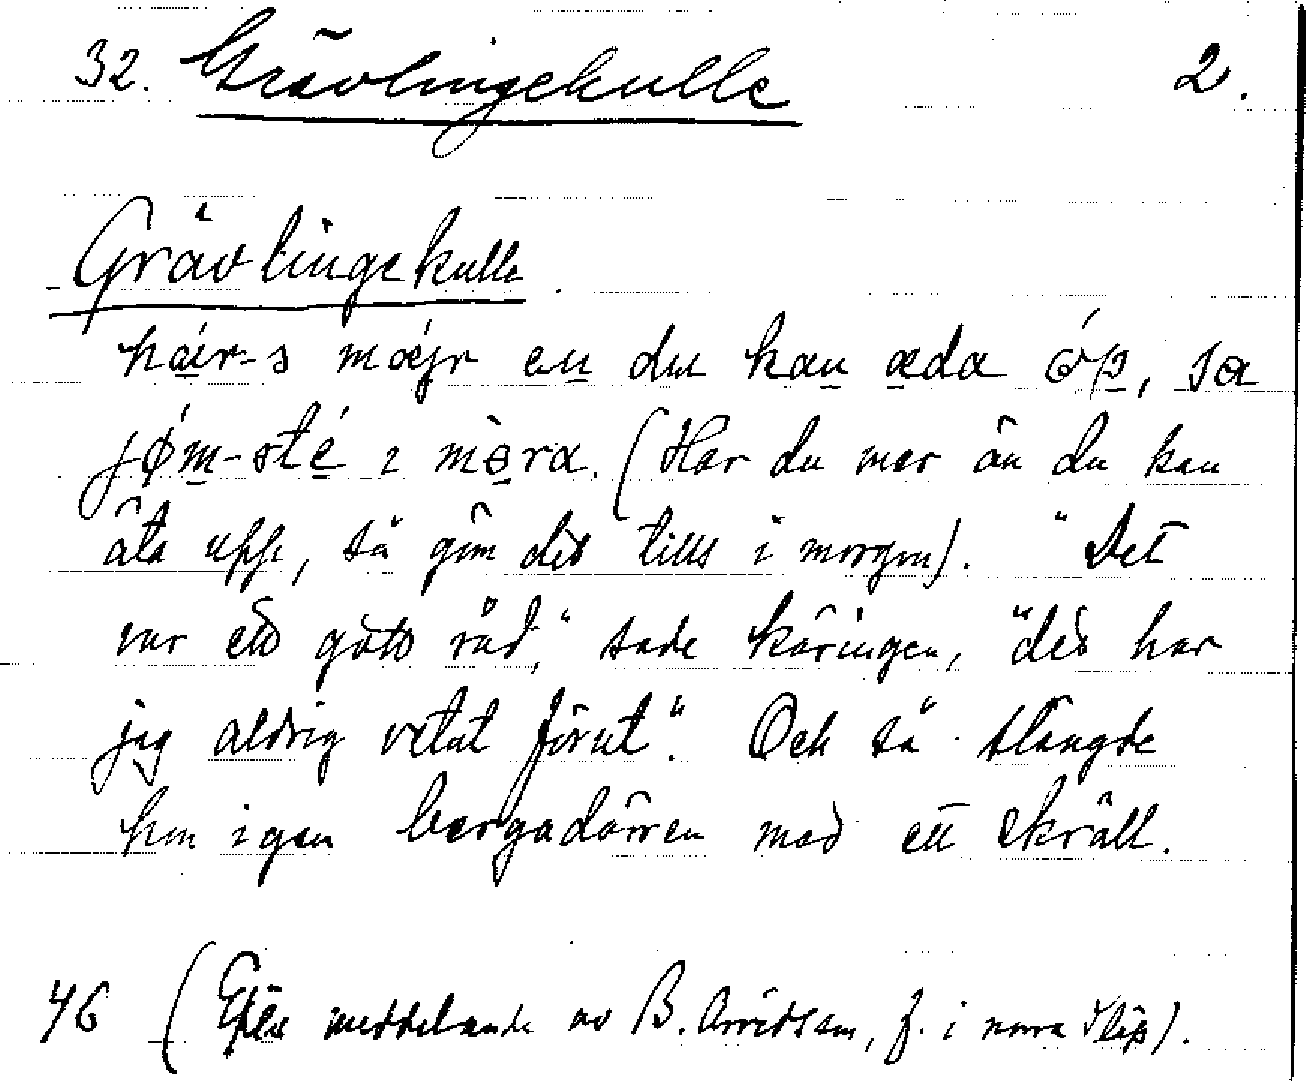 32. Grävlingekulle 2.
Grävlingekulle.
hair-s mæjr en du kan æda óp, sa
jøm-sté i mɵra. (Har du mer än du kan
äta upp, så göm det till i morgon). "Det
var ett gott råd," sade käringen, "det har
jag aldrig vetat förut". Och så slängde
hon igen bergadörren med ett skräll.
46 (Efter meddelande av B. Arvidsson, f. i norra Slip).